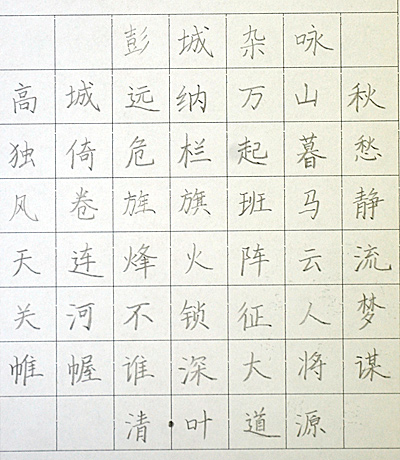 彭城杂咏
高城远纳万山秋
独倚危栏起暮愁
风卷旌旗班马静
天连烽火阵云流
关河不锁征人梦
帷幄谁深大将谋
清·叶道源